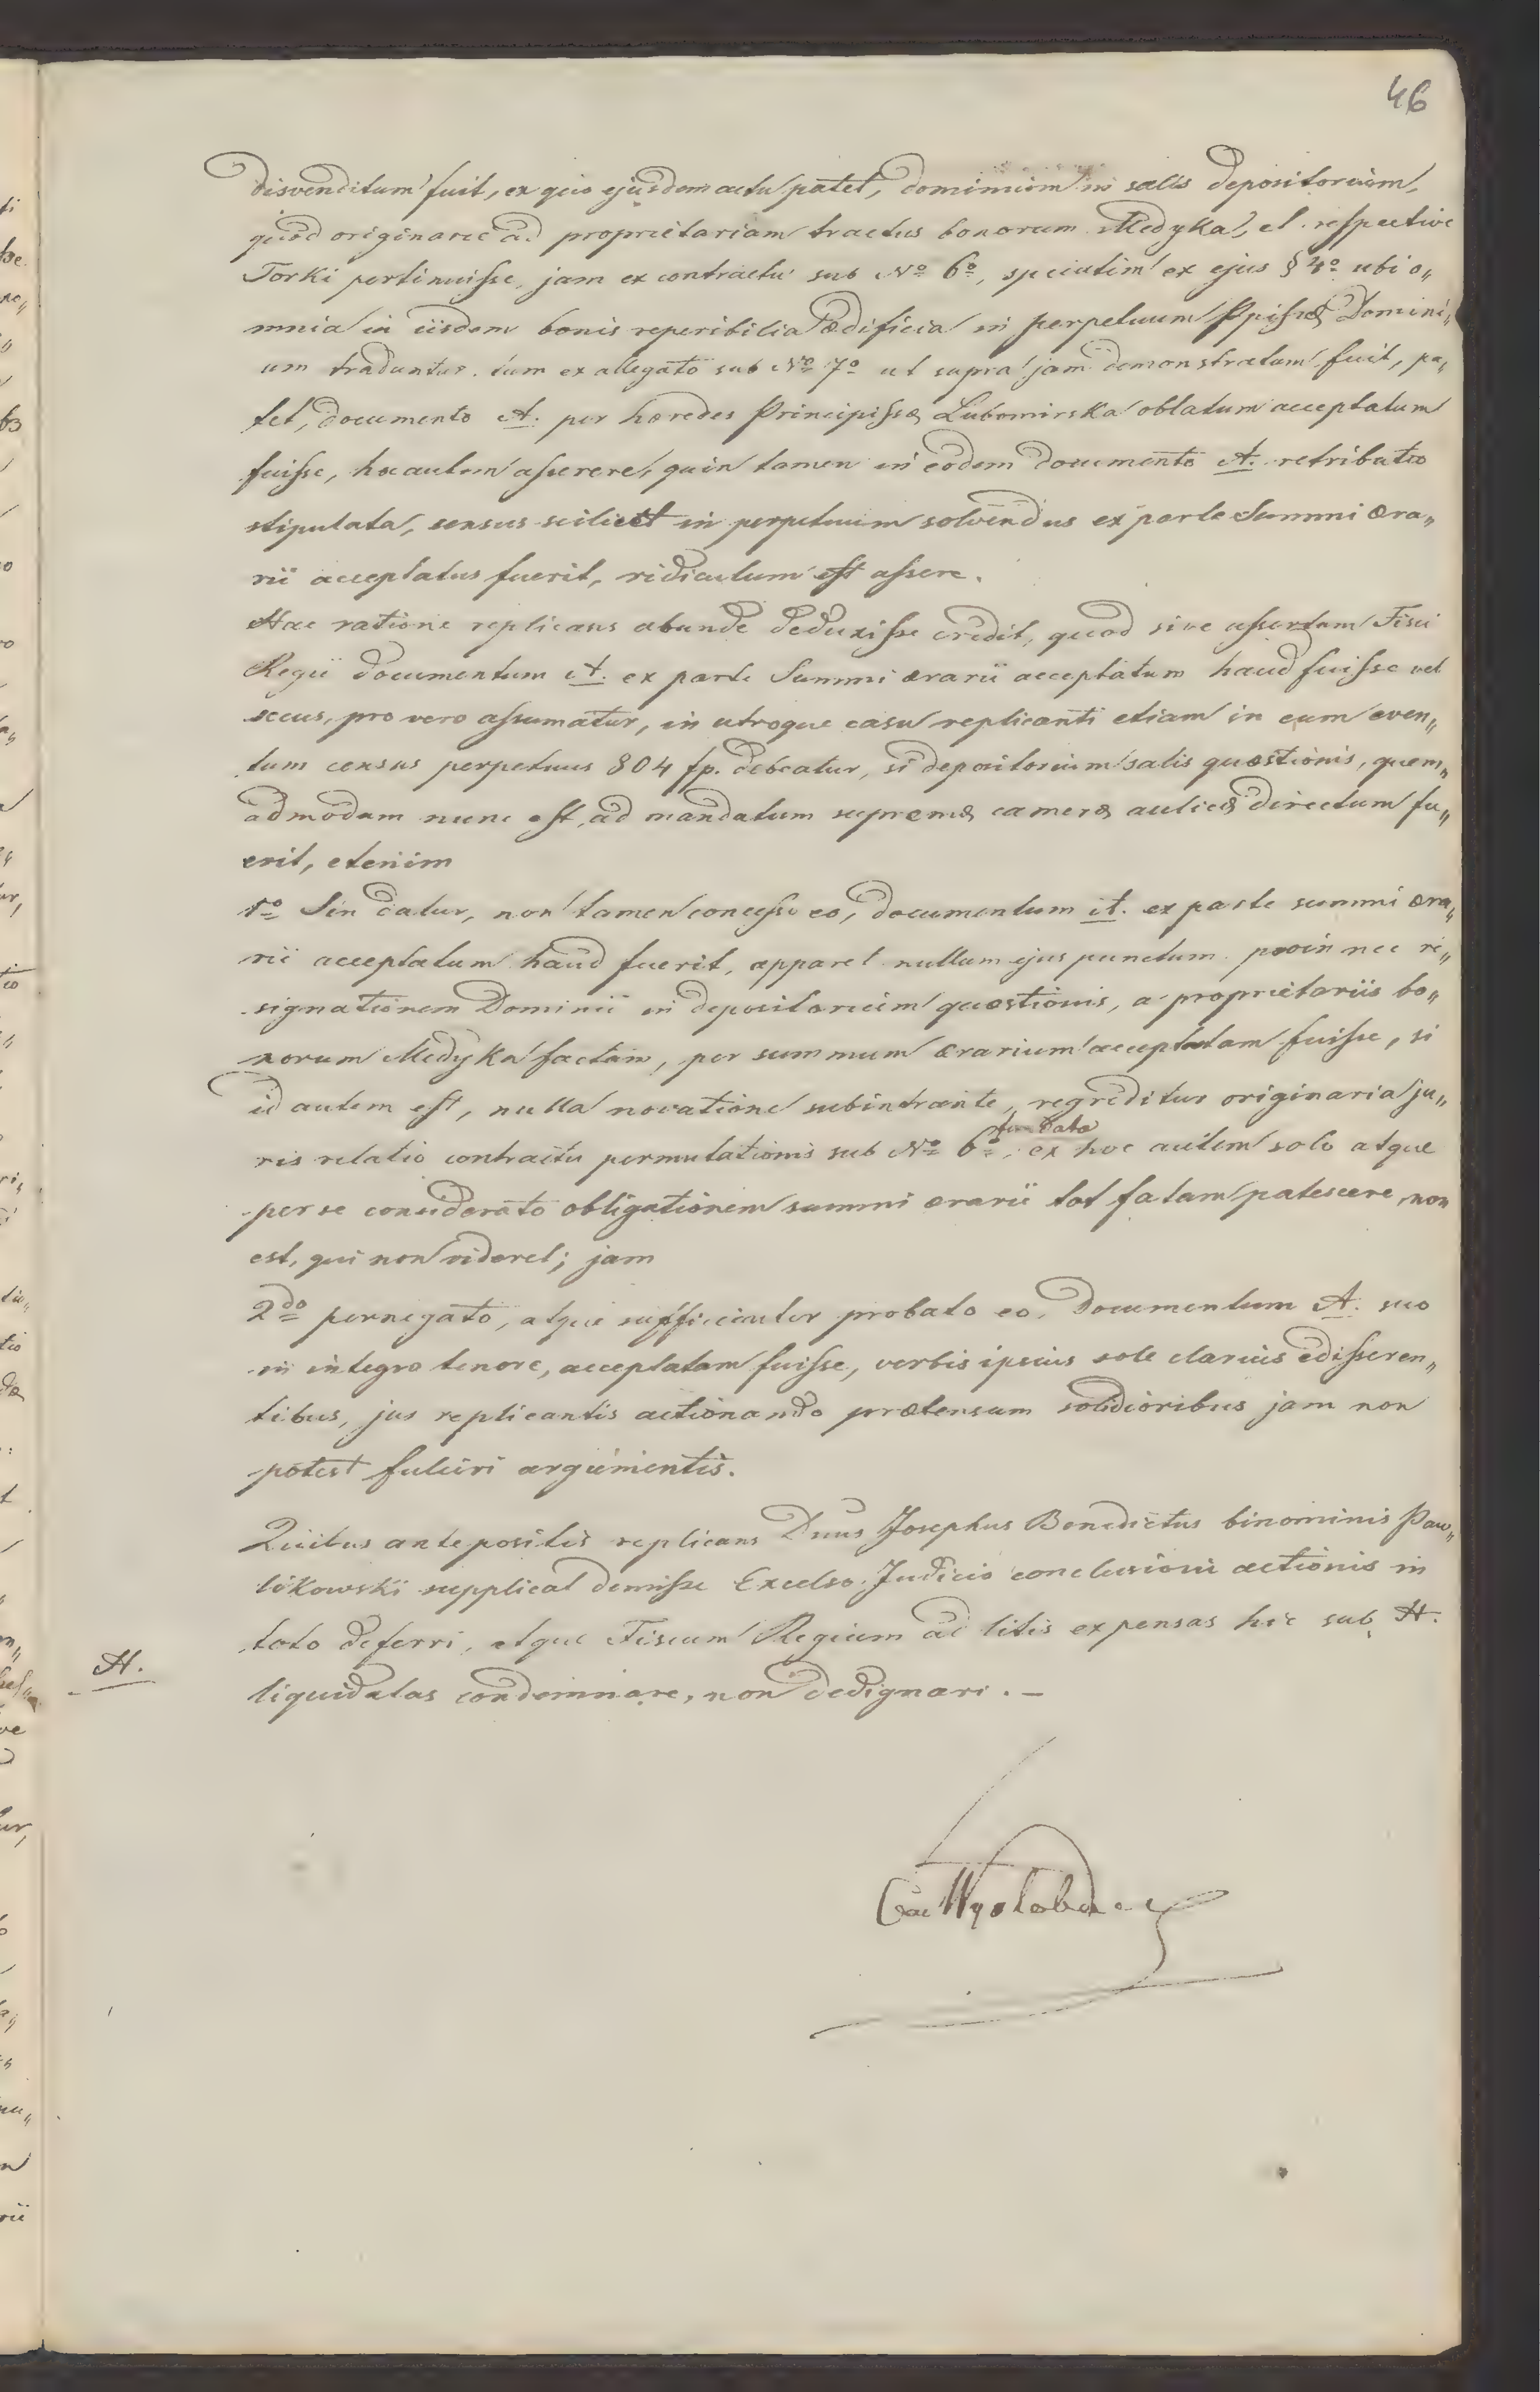 46
disvenditum fuit, ex quo ejusdem actu patet, dominium in salis depositorium,
quod originarie ad proprietariam tractus bonorum Medyka, et respective
Torki pertinuisse, jam ex contractu sub No 6o, speciatim ex ejus § 4o ubi o„
mnia in iisdem bonis reperibilia ædificia in perpetuum Ppissæ Domini„
um traduntur. tum ex allegato sub No 7o ut supra jam demonstratum fuit, pa„
tet, documento A. per hæredes Principissæ Lubomirska oblatum acceptatum
fuisse, hoc autem asserere, quin tamen in eodem documento A. retributio
stipulata, census scilicet in perpetuum solvendus ex parte Summi æra„
rii acceptatus fuerit, ridiculum est assere.
Hac ratione replicans abunde deduxisse credit, quod sive assertum Fisci
Regii documentum A. ex parte Summi ærarii acceptatum haud fuisse vel
secus, pro vero assumatur, in utroque casu replicanti etiam in eum even„
tum census perpetuus 804 fp. debeatur, si depositorium salis quæstionis, quem„
admodum nunc est, ad mandatum supremæ cameræ aulicæ directum fu„
erit, etenim
1o Sin datur, non tamen concesso eo, documentum A. ex parte summi æra„
rii acceptatum haud fuerit, apparet nullum ejus punctum proin nec re„
signationem Dominii in depositorium quæstionis, a proprietariis bo„
norum Medyka factam, per summum ærarium acceptatam fuisse, si
id autem est, nulla novatione subintrante, regreditur originaria ju„
fundata
ris relatio contractu permutationis sub No 6o, ex hoc autem solo atque
per se considerato obligationem summi ærarii tot fatam patescere, non
est, qui non videret; jam
2do pernegato, atque sufficienter probato eo, Documentum A. suo
in integro tenore, acceptatam fuisse, verbis ipsius sole clarius edisseren„
tibus, jus replicantis actionando prætensum solidioribus jam non
potest fulciri argumentis.
Quibus antepositis replicans Dnus Josephus Benedictus binominis Paw„
likowski supplicat demisse Excelso Judicio conclusioni actionis in
toto deferri, atque Fiscum Regium ad litis expensas hic sub H.
H.
liquidatas condemnare, non dedignari. —